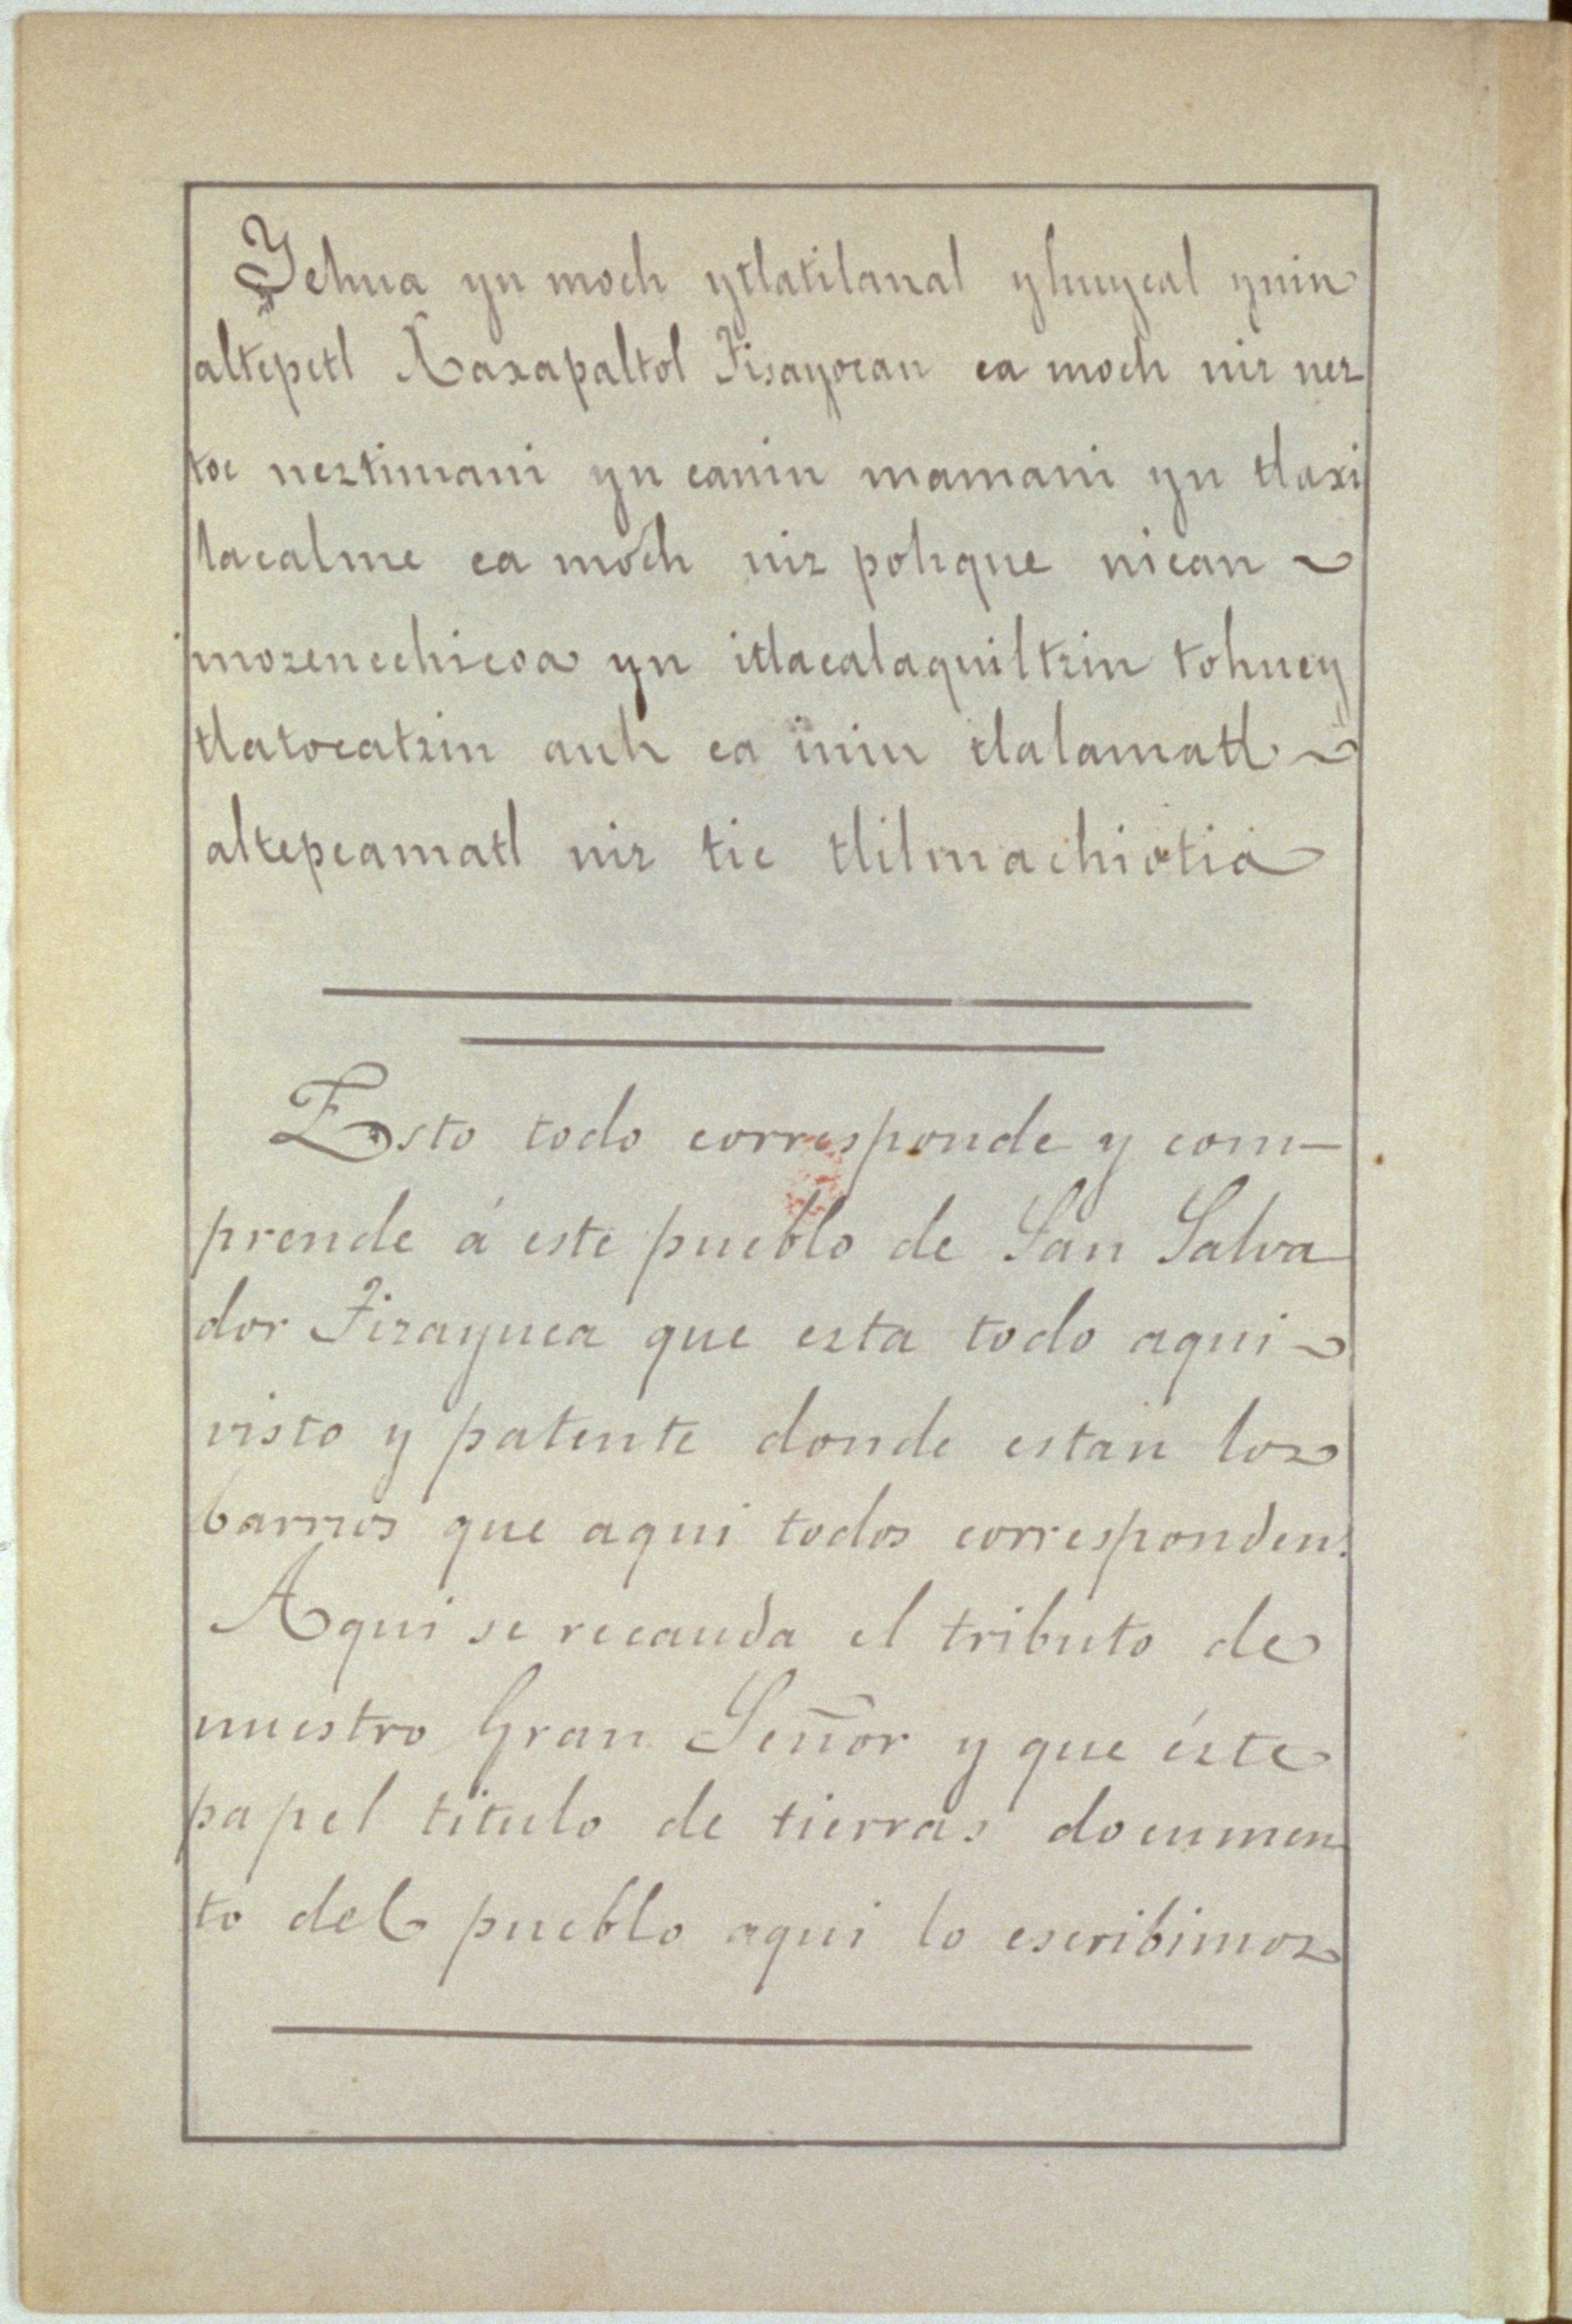 Yehua yn moch ytlatilanal yhuycal ynin
altepetl Xaxapaltol Tisayocan ca moch niz nez
toc neztimani yn canin mamani yn tlaxi
lacalme ca moch niz pohque nican
mozenechicoa yn itlacalaquiltzin tohuey
tlatocatzin auh ca inin tlalamatl
altepeamatl niz tic tlilmachiotia
Esto todo corresponde y com-
prende á este pueblo de San Salva
dor Tizayuca que ezta todo aqui
visto y patente donde estan loz
barrios que aqui todos corresponden.
Aqui se recauda el tributo de
nuestro Gran Señor y que ézte
papel titulo de tierras documen
to del pueblo aqui lo escribimoz